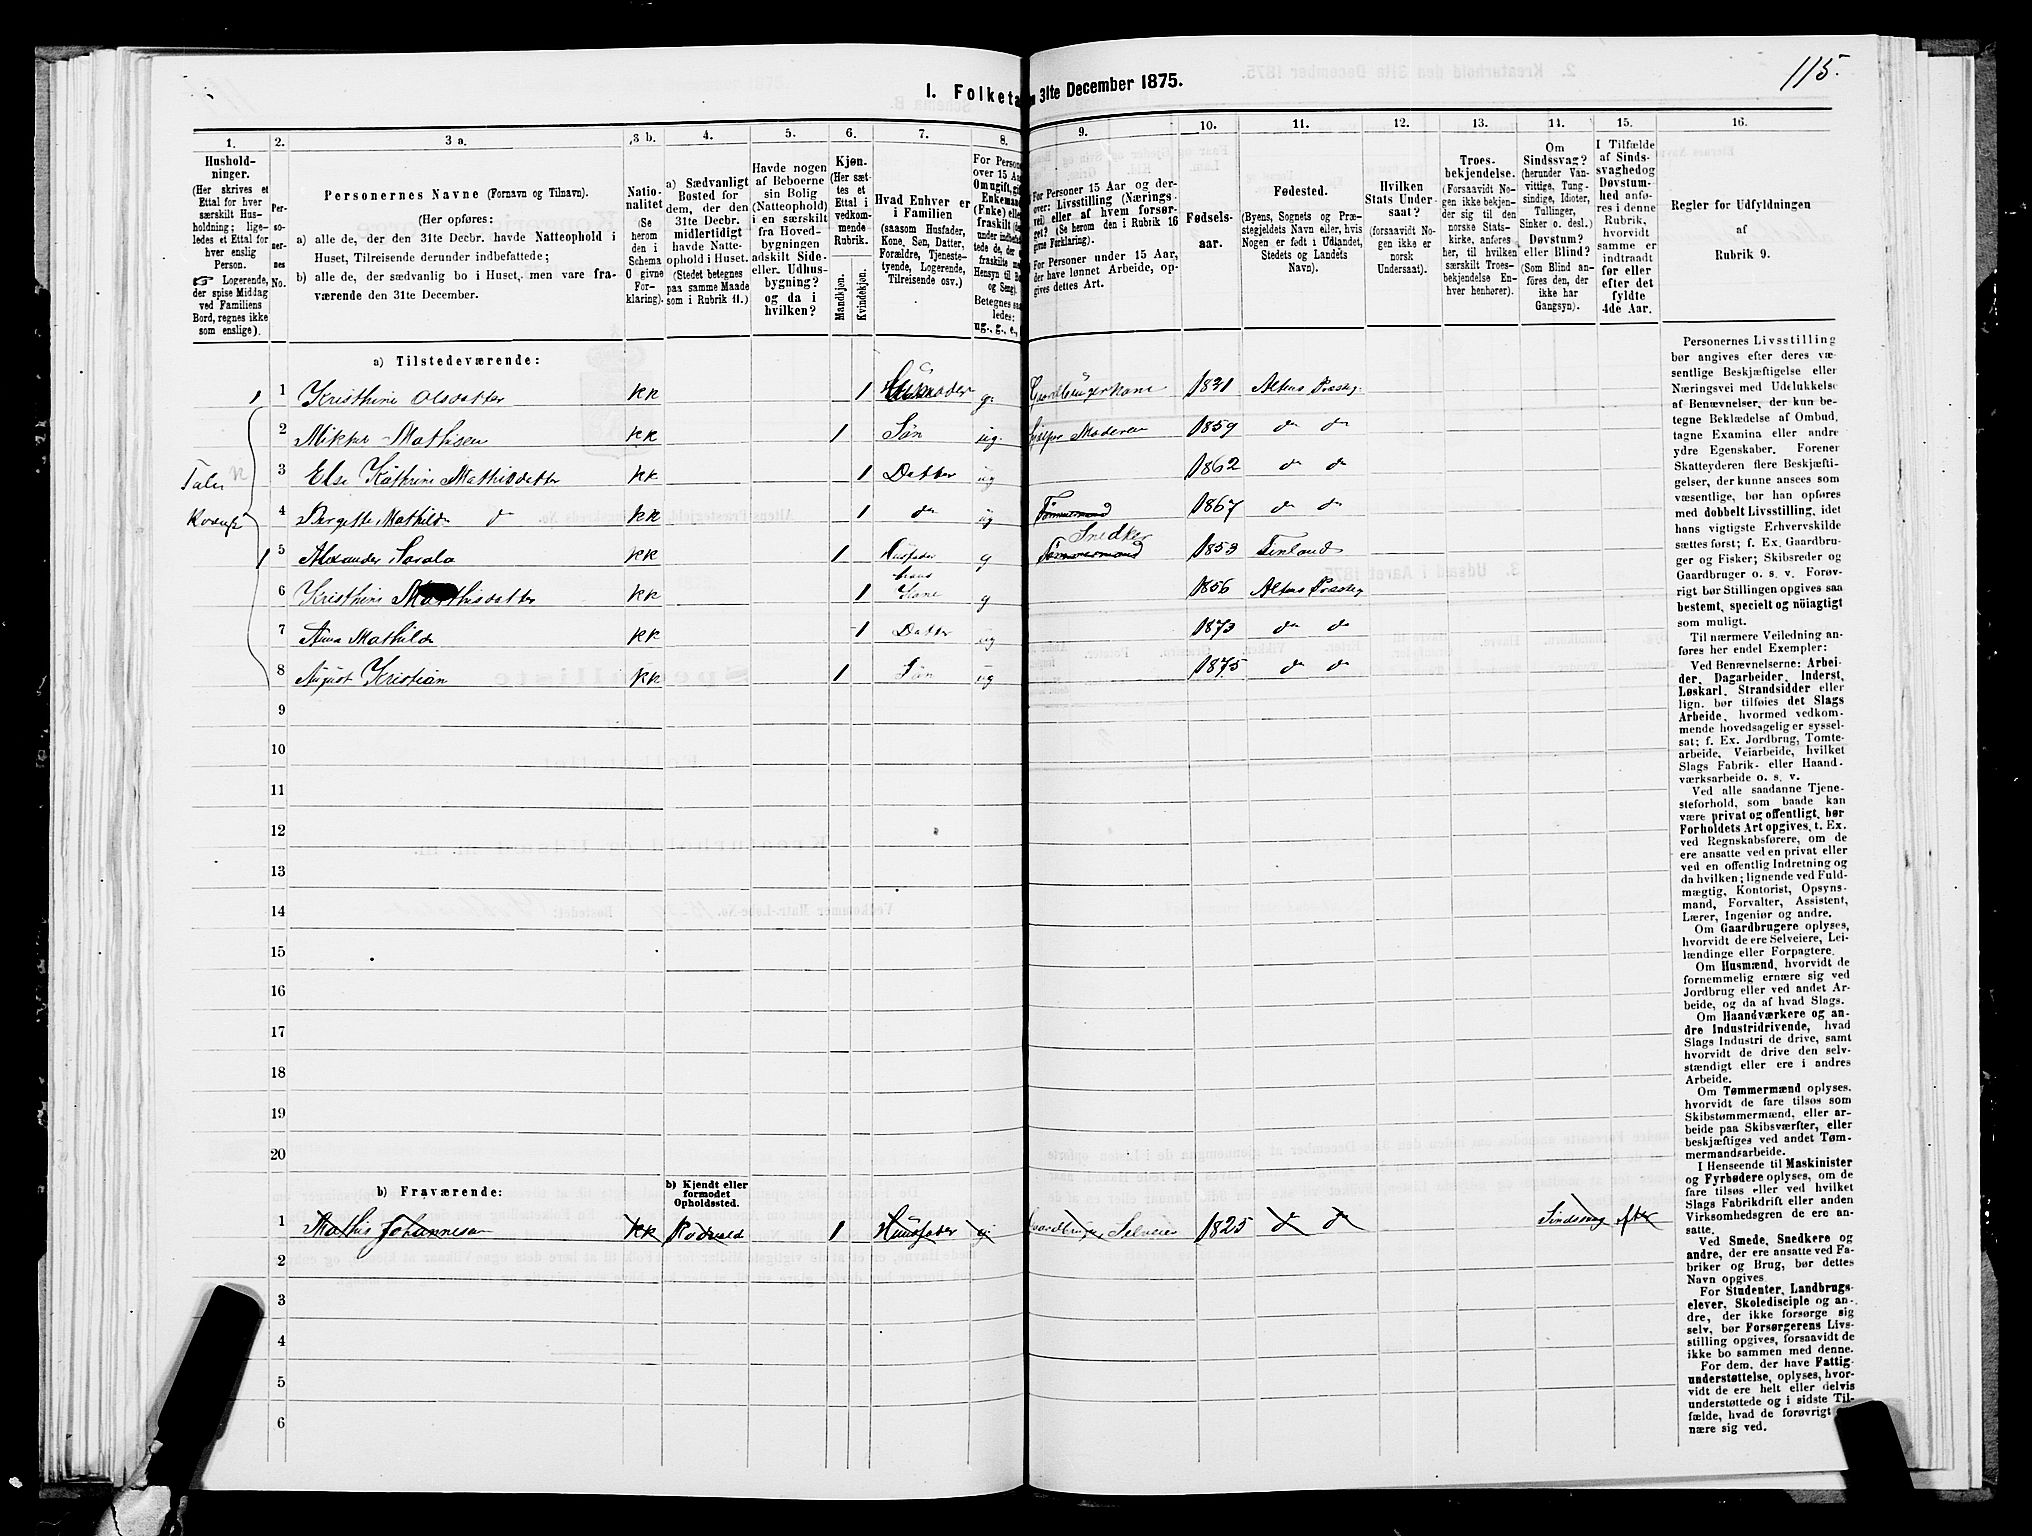 115.
1. Folketa n 31te December 1875.
1. 2. 3 a. 3 b. 4. 5. 6. 7. 8. 9. 10. 11. 12. 13. 14. 15. 16.
Hushold-
ninger.
(Her skrives et
Ettal for hver
særskilt Hus-
holdning; lige-
ledes et Ettal for
hver enslig
Person.
☞ Logerende,
der spise Middag
ved Familiens
Bord, regnes ikke
som enslige).
Per-
so-
ner-
nes
No.
Personernes Navne (Fornavn og Tilnavn).
(Her opføres:
a) alle de, der den 31te Decbr. havde Natteophold i
Huset, Tilreisende derunder indbefattede;
b) alle de, der sædvanlig bo i Huset, men vare fra-
værende den 31te December.
Natio-
nalitet
(Se
herom
den i
Schema
C givne
For-
klaring).
a) Sædvanligt
Bosted for
dem, der den
31te Decbr.
midlertidigt
havde Natte-
ophold i Huset.
(Stedet betegnes
paa samme Maade
som i Rubrik 11.)
Havde nogen
af Beboerne
sin Bolig
(Natteophold)
i en særskilt
fra Hoved-
bygningen
adskilt Side-
eller Udhus-
bygning?
og da i
hvilken?
Kjøn.
(Her sæt-
tes et
Ettal i
vedkom-
mende
Rubrik.
Mandkjøn.
Kvindekjøn.
Hvad Enhver er
i Familien
(saasom Husfader,
Kone, Søn, Datter,
Forældre, Tjeneste-
tyende, Logerende,
Tilreisende osv.)
For Persone
over 15 Aa
Om ugift, gif
Enkemand
(Enke) elle
fraskilt
Betegnes saa
ledes:
ug., g., e.,
For Personer 15 Aar og der-
over: Livsstilling (Nærings-
vei) eller af hvem forsør-
get? (Se herom den i Rubrik 16
givne Forklaring).
For Personer under 15 Aar,
der have lønnet Arbeide, op-
gives dettes Art.
Fødsels-
aar.
Fødested.
(Byens, Sognets og Præ-
stegjeldets Navn eller, hvis
Nogen er født i Udlandet,
Stedets og Landets
Navn).
Hvilken
Stats Under-
saat?
(forsaavidt No-
gen ikke er
norsk
Undersaat).
Troes-
bekjendelse.
(Forsaavidt No-
gen ikke bekjen-
der sig til den
norske Stats-
kirke, anføres
her, til hvilken
særskilt Troes-
bekjendelse En-
hver henhører).
Om
Sindssvag?
(herunder Van-
vittige, Tung-
sindige, Idioter,
Tullinger,
Sinker o. desl.)
Døvstum?
eller Blind?
(Som Blind an-
føres den, der
ikke har
Gangsyn).
I Tilfælde
af Sinds-
svaghed og
Døvstum-
hed anfø-
res i denne
Rubrik,
hvorvidt
samme er
indtraadt
før eller
efter det
fyldte
4de Aar.
Regler for Udfyldningen
af
Rubrik 9.
a) Tilstedeværende:
1 1 Kristhine Olsdatter KK 1 g. Gaardbrugerkone 1831 Altens Præsteg
2 Mikkel Mathisen KK 1 Søn ug. hjelper Moderen 1859 do do
3 Else Kathrine Mathisdatter KK 1 Datter ug 1862 do do
4 Bergette Mathilde d KK 1 do ug Tømmermand 1867 do do
1 5 Alexander Sarala KK 1 Husfader g Tømmermand Snedker 1853 Finland
6 Kristhine Mathisdatter KK 1 hans Kone g 1856 Altens Præsteg
7 Anna Mathilde KK 1 Datter ug 1873 do do
8 August Kristian KK 1 Søn ug 1875 do do
9
10
11
12
13
14
15
16
17
18
19
20
b) Fraværende:
b) Kjendt eller
formodet
Opholdssted.
1 Mathis Johannesen KK Rotvold 1 Husfader g Gaardbruger Selveier 1825 d do Sindssvag efter
2
3
4
5
6
Personernes Livsstilling
bør angives efter deres væ-
sentlige Beskjæftigelse eller
Næringsvei med Udelukkelse
af Benævnelser, der kun be-
tegne Beklædelse af Ombud,
tagne Examina eller andre
ydre Egenskaber. Forener
Skatteyderen flere Beskjæfti-
gelser, der kunne ansees som
væsentlige, bør han opføres
med dobbelt Livsstilling, idet
hans vigtigste Erhvervskilde
sættes først; f. Ex. Gaardbru-
ger og Fisker; Skibsreder og
Gaardbruger o. s. v. Forøv-
rigt bør Stillingen opgives saa
bestemt, specielt og nöiagtigt
som muligt.
Til nærmere Veiledning an-
føres her endel Exempler:
Ved Benævnelserne: Arbei-
der, Dagarbeider, Inderst,
Løskarl, Strandsidder eller
lign. bør tilføies det Slags
Arbeide, hvormed vedkom-
mende hovedsagelig er syssel-
sat; f. Ex. Jordbrug, Tomte-
arbeide, Veiarbeide, hvilket
Slags Fabrik- eller Haand-
værksarbeide o. s. v.
Ved alle saadanne Tjene-
steforhold, som baade kan
være privat og offentligt, bør
Forholdets Art opgives, t. Ex.
ved Regnskabsførere, om de
ere ansatte ved en privat eller
ved en offentlig Indretning og
da hvilken; lignende ved Fuld-
mægtig, Kontorist, Opsyns-
mand, Forvalter, Assistent,
Lærer, Ingeniør og andre.
Om Gaardbrugere oplyses,
hvorvidt de ere Selveiere, Lei-
lændinge eller Forpagtere.
Om Husmænd, hvorvidt de
fornemmelig ernære sig ved
Jordbrug eller ved andet Ar-
beide, og da af hvad Slags.
Om Haandværkere og an-
dre Industridrivende, hvad
Slags Industri de drive, samt
hvorvidt de drive den selv-
stændigt eller ere i andres
Arbeide.
Om Tømmermænd oplyses,
hvorvidt de fare tilsøs som
Skibstømmermænd, eller ar-
beide paa Skibsværfter, eller
beskjæftiges ved andet Tøm-
mermandsarbeide.
I Henseende til Maskinister
og Fyrbødere oplyses, om de
fare tilsøs eller ved hvilket
Slags Fabrikdrift eller anden
Virksomhedsgren de ere an-
satte.
Ved Smede, Snedkere og
andre, der ere ansatte ved Fa-
briker og Brug, bør dettes
Navn opgives.
For Studenter, Landbrugs-
elever, Skoledisciple og an-
dre, der ikke forsørge sig
selv, bør Forsørgerens Livs-
stilling opgives, forsaavidt de
ikke bo sammen med denne.
For dem, der have Fattig-
understøttelse, oplyses, hvor-
vidt de ere helt eller delvis
understøttede og i sidste Til-
fælde, hvad de forøvrigt er-
nære sig ved.